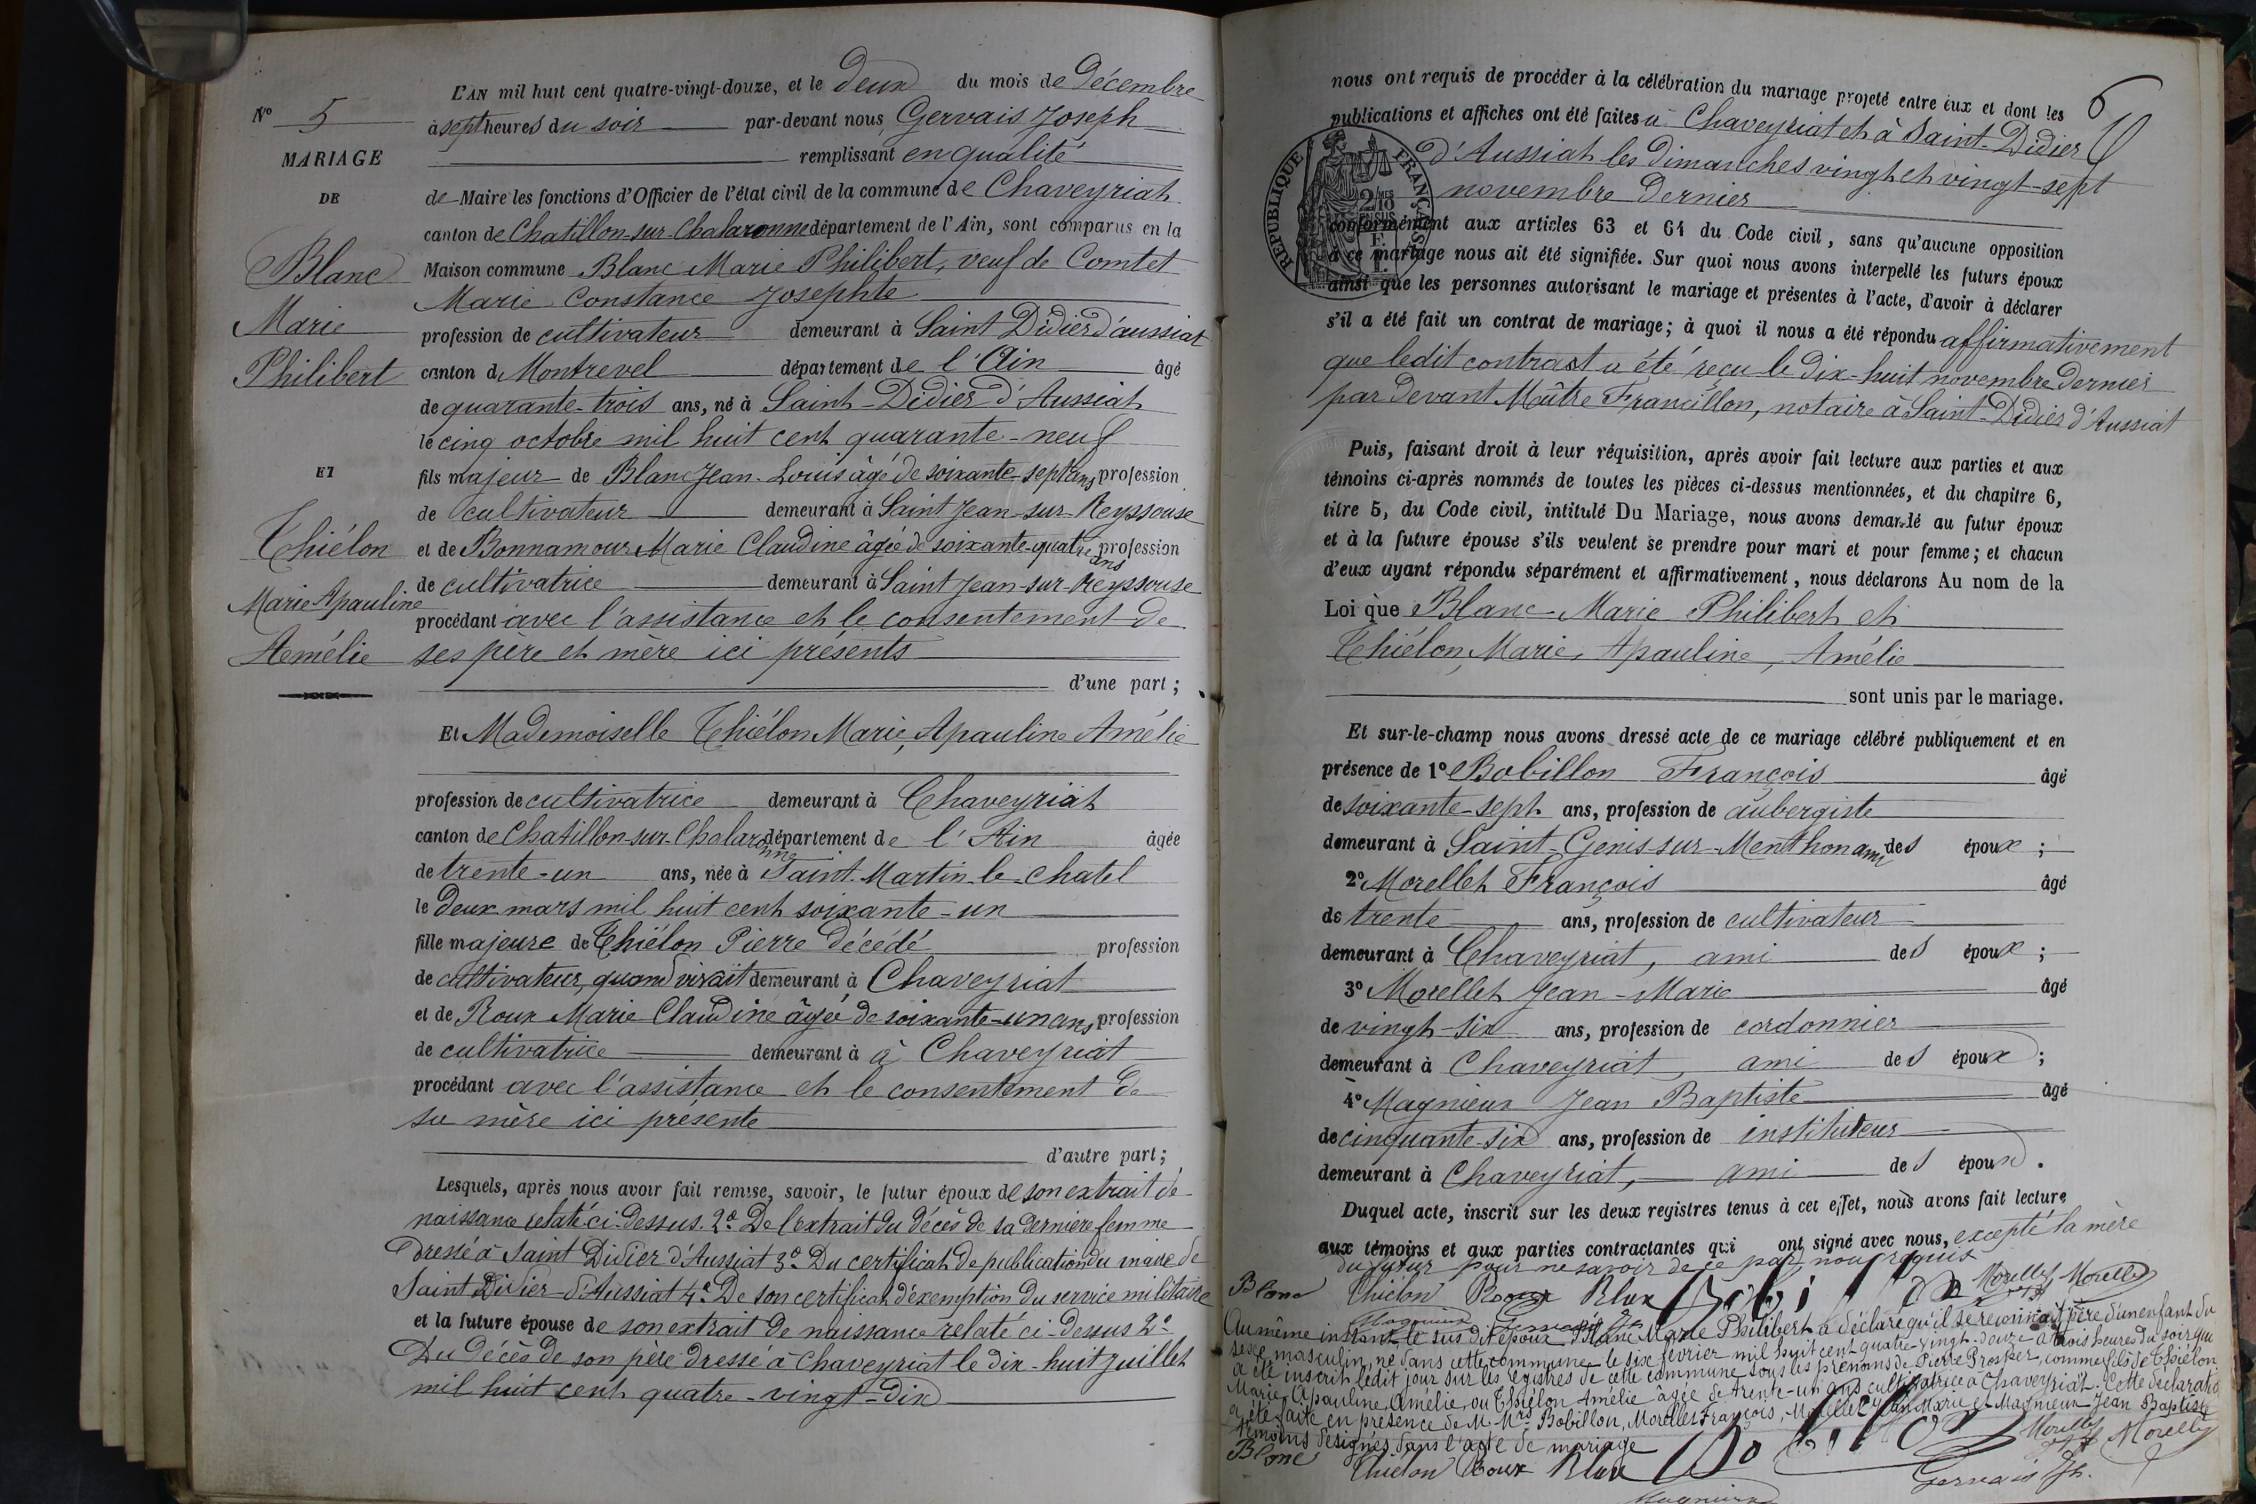 N° 5
MARIAGE
DE
Blanc
Marie
Philibert
ET
Thiélon
Marie Apauline
Amélie
L'AN mil huit cent quatre-vingt-douze, et le deux du mois de Décembre
à sept heures du soir par-devant nous Gervais Joseph
remplissant en qualité
de Maire les fonctions d'Officier de l'état civil de la commune de Chaveyriat
canton de Chatillon-sur-Chalaronne département de l'Ain, sont comparus en la
Maison commune Blanc Marie Philibert, veuf de Comtet
Marie Constance Josephte
profession de cultivateur demeurant à Saint Didier d'aussiat
canton d Montrevel département de l'Ain âgé
de quarante-trois ans, né à Saint-Didier d'Aussiat
le cinq octobre mil huit cent quarante-neuf
fils majeur de Blanc Jean-Louis âgé de soixante-sept ans profession
de cultivateur demeurant à Saint Jean-sur-Reyssouse
et de Bonnamour Marie Claudine âgée de soixante-quatre ans profession
de cultivatrice demeurant à Saint Jean-sur-Reyssouse
procédant avec l'assistance et le consentement de
ses père et mère ici présents
d'une part;
Et Mademoiselle Thiélon Marie, Apauline Amélie
profession de cultivatrice demeurant à Chaveyriat
canton de Chatillon-sur-Chalaronne département de l'Ain âgée
de trente-un ans, née à Saint-Martin-le-Chatel
le deux mars mil huit cent soixante-un
fille majeure de Thiélon Pierre décédé profession
de cultivateur, quand vivait demeurant à Chaveyriat
et de Roux Marie Claudine âgée de soixante-un ans profession
de cultivatrice demeurant à à Chaveyriat
procédant avec l'assistance et le consentement de
sa mère ici présente
d'autre part;
Lesquels, après nous avoir fait remise, savoir, le futur époux de son extrait de
naissance relaté ci-dessus. 2° De l'extrait du décès de sa dernière femme
dressé à Saint Didier d'Aussiat 3° Du certificat de publication du maire de
Saint Didier-d'Aussiat 4° De son certificat d'éxemption du service militaire
et la future épouse de son extrait de naissance relaté ci-dessus 2°
Du décès de son père dressé à Chaveyriat le dix-huit juillet
mil huit cent quatre-vingt-dix
6
nous ont requis de procéder à la célébration du mariage projeté entre eux et dont les
publications et affiches ont été faites à Chaveyriat et à Saint-Didier
d'Aussiat les dimanches vingt et vingt-sept
novembre dernier
RÉPUBLIQUE FRANÇAISE
conformément aux articles 63 et 64 du Code civil, sans qu'aucune opposition
à ce mariage nous ait été signifiée. Sur quoi nous avons interpellé les futurs époux
ainsi que les personnes autorisant le mariage et présentes à l'acte, d'avoir à déclarer
s'il a été fait un contrat de mariage; à quoi il nous a été répondu affirmativement
que ledit contrast a été reçu le dix-huit novembre dernier
par devant Maître Francillon, notaire à Saint-Didier d'Aussiat
Puis, faisant droit à leur réquisition, après avoir fait lecture aux parties et aux
témoins ci-après nommés de toutes les pièces ci-dessus mentionnées, et du chapitre 6,
titre 5, du Code civil, intitulé Du Mariage, nous avons demandé au futur époux
et à la future épouse s'ils veulent se prendre pour mari et pour femme; et chacun
d'eux ayant répondu séparément et affirmativement, nous déclarons Au nom de la
Loi que Blanc Marie Philibert et
Thiélon, Marie, Apauline, Amélie
sont unis par le mariage.
Et sur-le-champ nous avons dressé acte de ce mariage célébré publiquement et en
présence de 1° Bobillon François âgé
de soixante-sept ans, profession de aubergiste
demeurant à Saint-Genis sur-Menthon ami des époux;
2° Morellet François âgé
de trente ans, profession de cultivateur
demeurant à Chaveyriat, ami des époux;
3° Morellet Jean-Marie âgé
de vingt-six ans, profession de cordonnier
demeurant à Chaveyriat, ami des époux;
4° Magnieux Jean Baptiste âgé
de cinquante-six ans, profession de instituteur
demeurant à Chaveyriat, ami des époux.
Duquel acte, inscrit sur les deux registres tenus à cet effet, nous avons fait lecture
aux témoins et aux parties contractantes qui ont signé avec nous, excepté la mère
du futur pour ne savoir de ce par nous requis
Blanc Thiélon Roux Blanc Bobillon Morellet Morellet
Magnieux Gervais Jh
Au même instant, le sus dit époux Blanc Marie Philibert a déclaré qu'il se reconnait père d'un enfant du
sexe masculin, né dans cette commune le six février mil huit cent quatre-vingt-douze à trois heures du soir qui
a été inscrit ledit jour sur les registres de cette commune sous les prénoms de Pierre Prosper, comme fils de Thiélon
Marie Apauline, Amélie, ou Thiélon Amélie âgée de trente-un ans cultivatrice à Chaveyriat. Cette déclaration
a été faite en présence de M.Mrs Bobillon, Morellet François, Morellet Jean Marie et Magnieux Jean Baptiste
témoins désignés dans l'acte de mariage
Blanc Thiélon Roux Blanc Bobillon Morellet Morellet
Magnieux Gervais Jh.